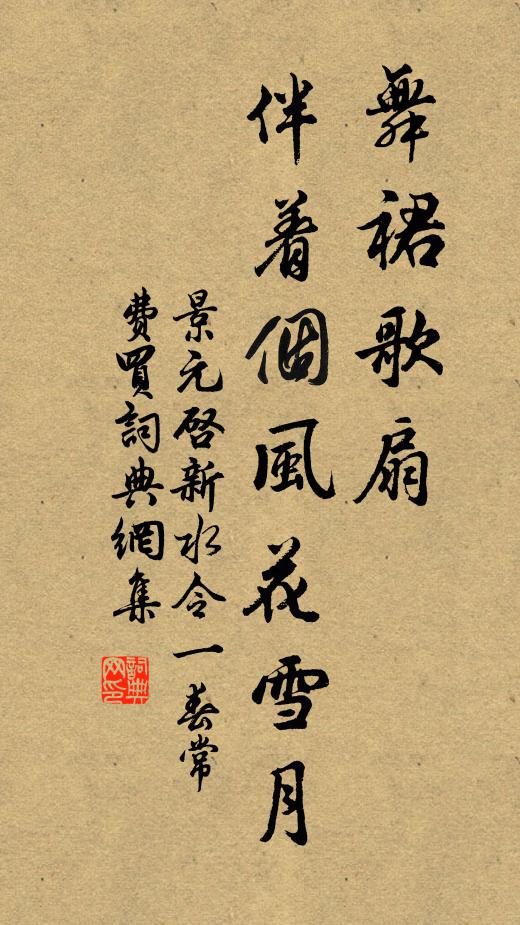 舞裙歌扇
伴着個風花雪月
景元啓新水令一春常
費買詞典網集
詞典
网印